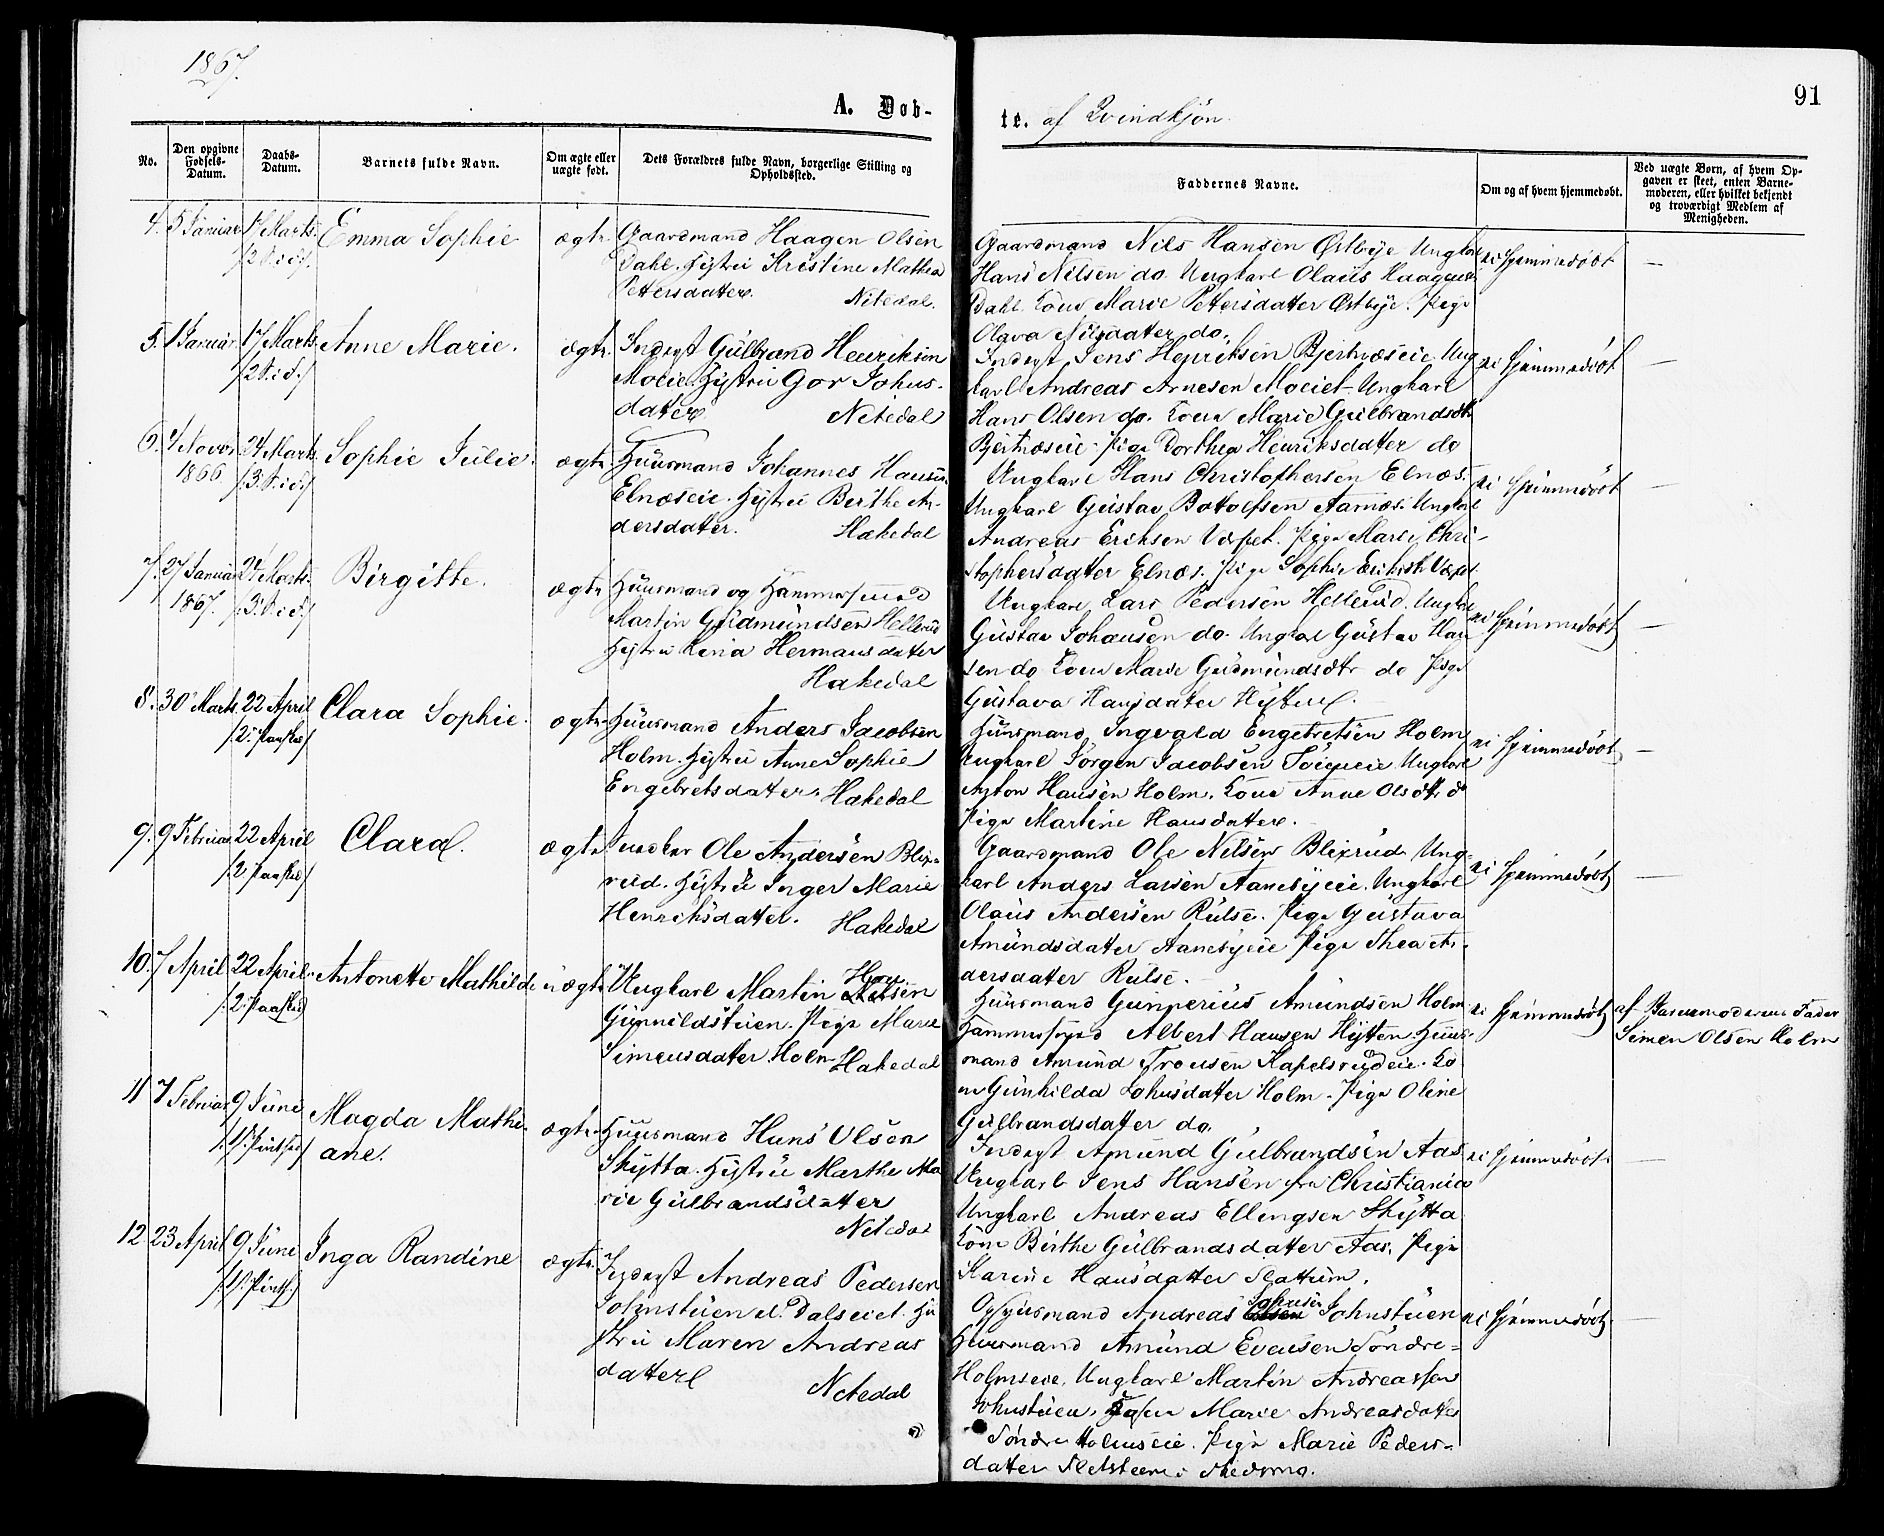 1867.
91
A. Døb-
te. af Qvindkjøn.
No.
Den opgivne Fødsels-Datum.
Daabs-Datum.
Barnets fulde Navn.
Om ægte eller uægte født.
Dets Forældres fulde Navn, borgerlige Stilling og Opholdssted.
Faddernes Navne.
Om og af hvem hjemmedøbt.
Ved uægte Børn, af hvem Op-
gaven er skeet, enten Barne-
moderen, eller hvilket bekjendt
og troværdigt Medlem af
Menigheden.
4. 5 Januar 17 Marts Emma Sophie ægte
Gaardmand Haagen Olsen
Dahl. Hustru Kristine Mathea
Pettersdatter. Nitedal.
Gaardmand Nils Hansen Østbye Ungkarl
Hans Nilsen do. Ungkarl Olaus Haagens.
Dahl. Kone Marie Petersdatter Østbye. Pige
Olava Nilsdatter do.
ei hjemmedøbt —
5. 1 Januar 17 Marts Anne Marie. ægte.
Inderst Gulbrand Henriksen
Moeie. Hustru Gor Johns-
datter Nitedal
Inderst Jens Henriksen Bjertnæseie. Ung
karl Andreas Arnesen Moeiet. Ungkarl
Hans Olsen do. Kone Marie Gulbrandsdt.
Bjertnæseie. Pige Dorthea Henriksdatter do
ei hjemmedøbt —
6. 4 Novbr. 1866. 24 Marts Sophie Julie. ægte
Huusmand Johannes Hansen
Elnæseie. Hustru Berthe An-
dersdatter. Hakedal
Ungkarl Hans Christophersen Elnæs.
Ungkarl Gustav Botolfsen Aarnæs. Ungkarl
Andreas Eriksen Værpet. Pige Marie Chri-
stophersdatter Elnæs. Pige Sophie Eriksdt Værpet
ei hjemmedøbt —
7. 27 Januar 1867. 24 Marts Birgitte. ægte
Huusmand og Hammersmed
Martin Gudmundsen Hellerud
Hustru Lina Hermansdatter
Hakedal
Ungkarl Lars Pedersen Hellerud. Ungkarl
Gustav Johansen do. Ungkarl Gustav Han
sen do Kone Marie Gudmundsdtr do Pige
Gustava Hansdatter Hytten.
ei hjemmedøbt —
8. 30 Marts 22 April /2 Paaske/ Clara Sophie. ægte
Huusmand Anders Jacobsen
Holm. Hustru Anne Sophie
Engebretsdatter. Hakedal
Huusmand Ingvald Engebretsen Holm
Ungkarl Jørgen Jacobsen Ungkarl
Anton Hansen Holm. Kone Anne Olsdtr do
Pige Martine Hansdatter.
ei hjemmedøbt —
9. 9 Februar 22 April /2 Paaske/ Clara. ægte
Snedker Ole Andersen Blix-
rud. Hustru Inger Marie
Henriksdatter. Hakedal
Gaardmand Ole Nilsen Blixrud Ung-
karl Anders Larsen Aanesyeie. Ungkarl
Olaus Andersen Rulse. Pige Gustava
Amundsdatter Aanesyeie Pige Thea An-
dersdatter Rulse.
ei hjemmedøbt —
10. 7 April 22 April /2 Paaske/ Antonette Mathilde uægte
Ungkarl Martin Hansen
Gunnildstuen. Pige Marie
Simensdatter Holm. Hakedal
Huusmand Gunnerius Amundsen Holm
Hammersmed Albert Hansen Hytten. Huus-
mand Amund Tronsen Kapelsrudeie. Ko
ne Gunhilda Johnsdatter Holm. Pige Oline
Gulbrandsdatter do.
ei hjemmedøbt
af Barnemoderens Fader
Simen Olsen Holm
11 7 Februar 9 Juni /1 Pintse/ Magda Mathi-
ane. ægte.
Huusmand Hans Olsen
Skytta. Hustru Marthe Ma
rie Gulbrandsdatter
Nitedal
Inderst Amund Gulbrandsen Aas
Ungkarl Jens Hansen fra Christiania
Ungkarl Andreas Ellingsen Skytta
Kone Birthe Gulbrandsdatter Aas. Pige
Karine Hansdatter Slattum.
ei hjemmedøbt —
12 23 April 9 Juni /1 Pints/ Inga Randine ægte
Inderst Andreas Pedersen
Johnstuen u. Dalseiet. Hu
stru Maren Andreas
datter Nitedal
Huusmand Andreas Johnsen Johnstuen
Huusmand Amund Evensen Søndre-
Holmseie. Ungkarl Martin Andreassen
Johnstuen. Kone Marie Andreasdatter
Søndre Holmseie. Pige Marie Peders-
datter i Skedsmo.
ei hjemmedøbt —